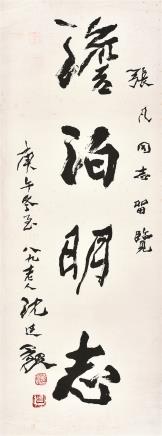 张凡同志留览
澹泊明志
庚午冬至
八九老人沈延毅